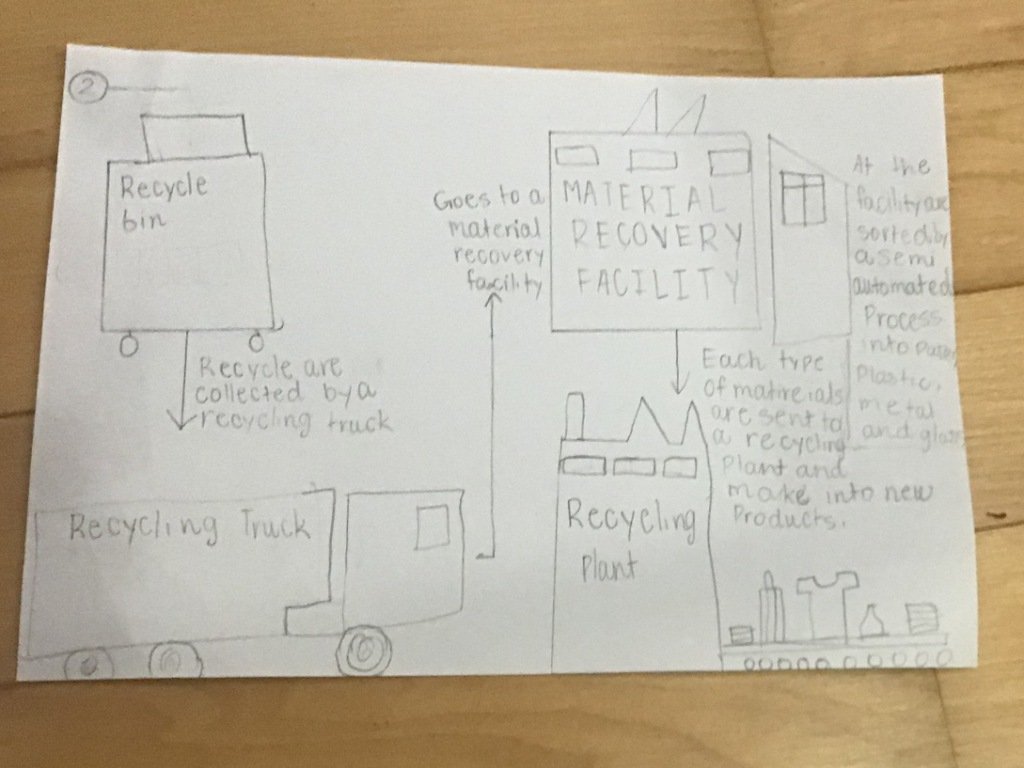 2
Recycle
bin
Recycle are
collected by a
recycling truck
Recycling Truck
Goes to a
material
recovery
facility
MATERIAL
RECOVERY
FACILITY
At the
facility are
sorted by
a semi
automated
Process
into paper,
Plastic,
metal
and glass
Each type
of matireials
are sent to
a recycling
Plant and
make into new
Products.
Recycling
Plant